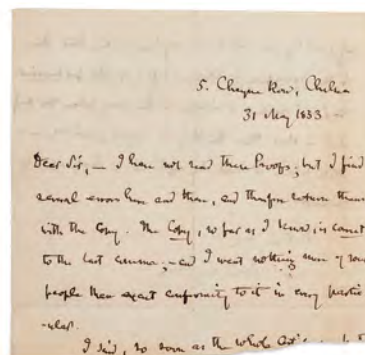 5. Cheyne Row, Chelsea
31 May 1853
Dear Sir, — I have not read these Proofs; but I find
several errors here and there, and therefore return them
with the Copy. The Copy, so far as I know, is correct
to the last comma; — and I want nothing more of your
people than exact conformity to it in every partic
-ular.
I said, so soon as the whole